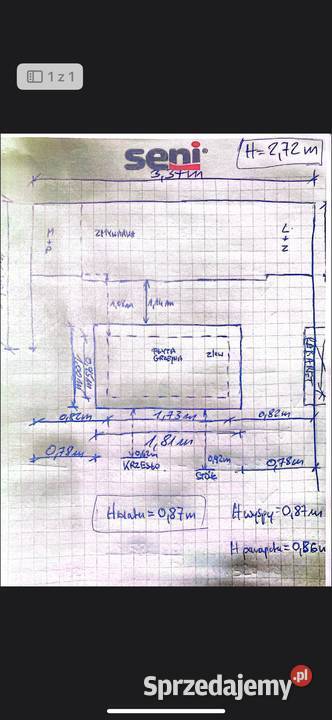 1 z 1
seni
H = 2,72 m
3,37m
M+P
ZMYWARKA
L+Z
1,06m
1,14m
PŁYTA GRZEJNA
ZLEW
0,95m
1,00m
0,82m
1,73m
0,82m
1,81m
0,78m
0,63m
KRZESŁO
0,92m
STÓŁ
0,78m
H blatu = 0,87m
H wyspy = 0,87m
H parapetu = 0,86m
Sprzedajemy.pl